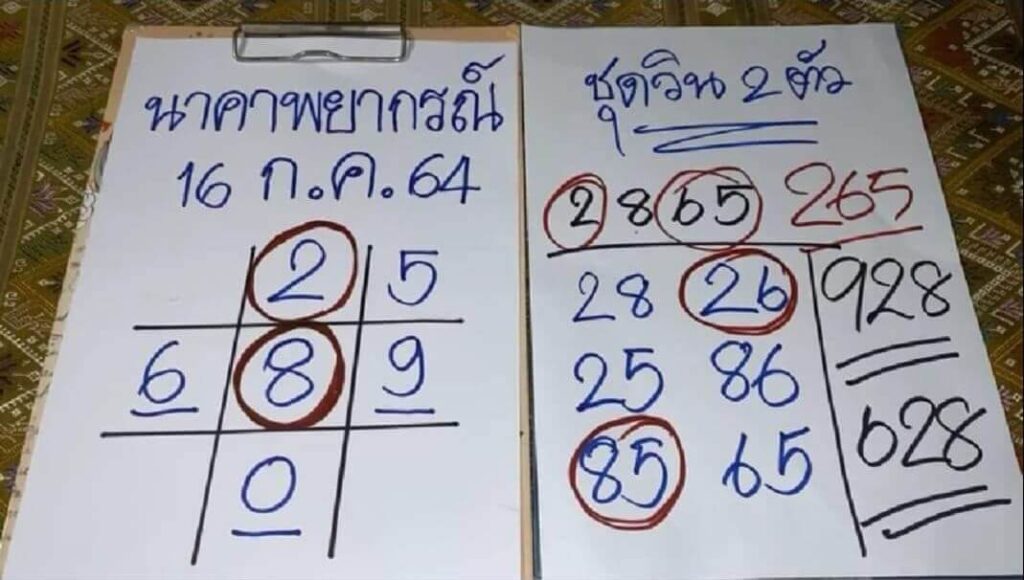 นาคาพยากรณ์
16 ก.ค.64
2 5
6 8 9
0
ชุดวิน 2 ตัว
2865 265
28 26 928
25 86
85 65 628